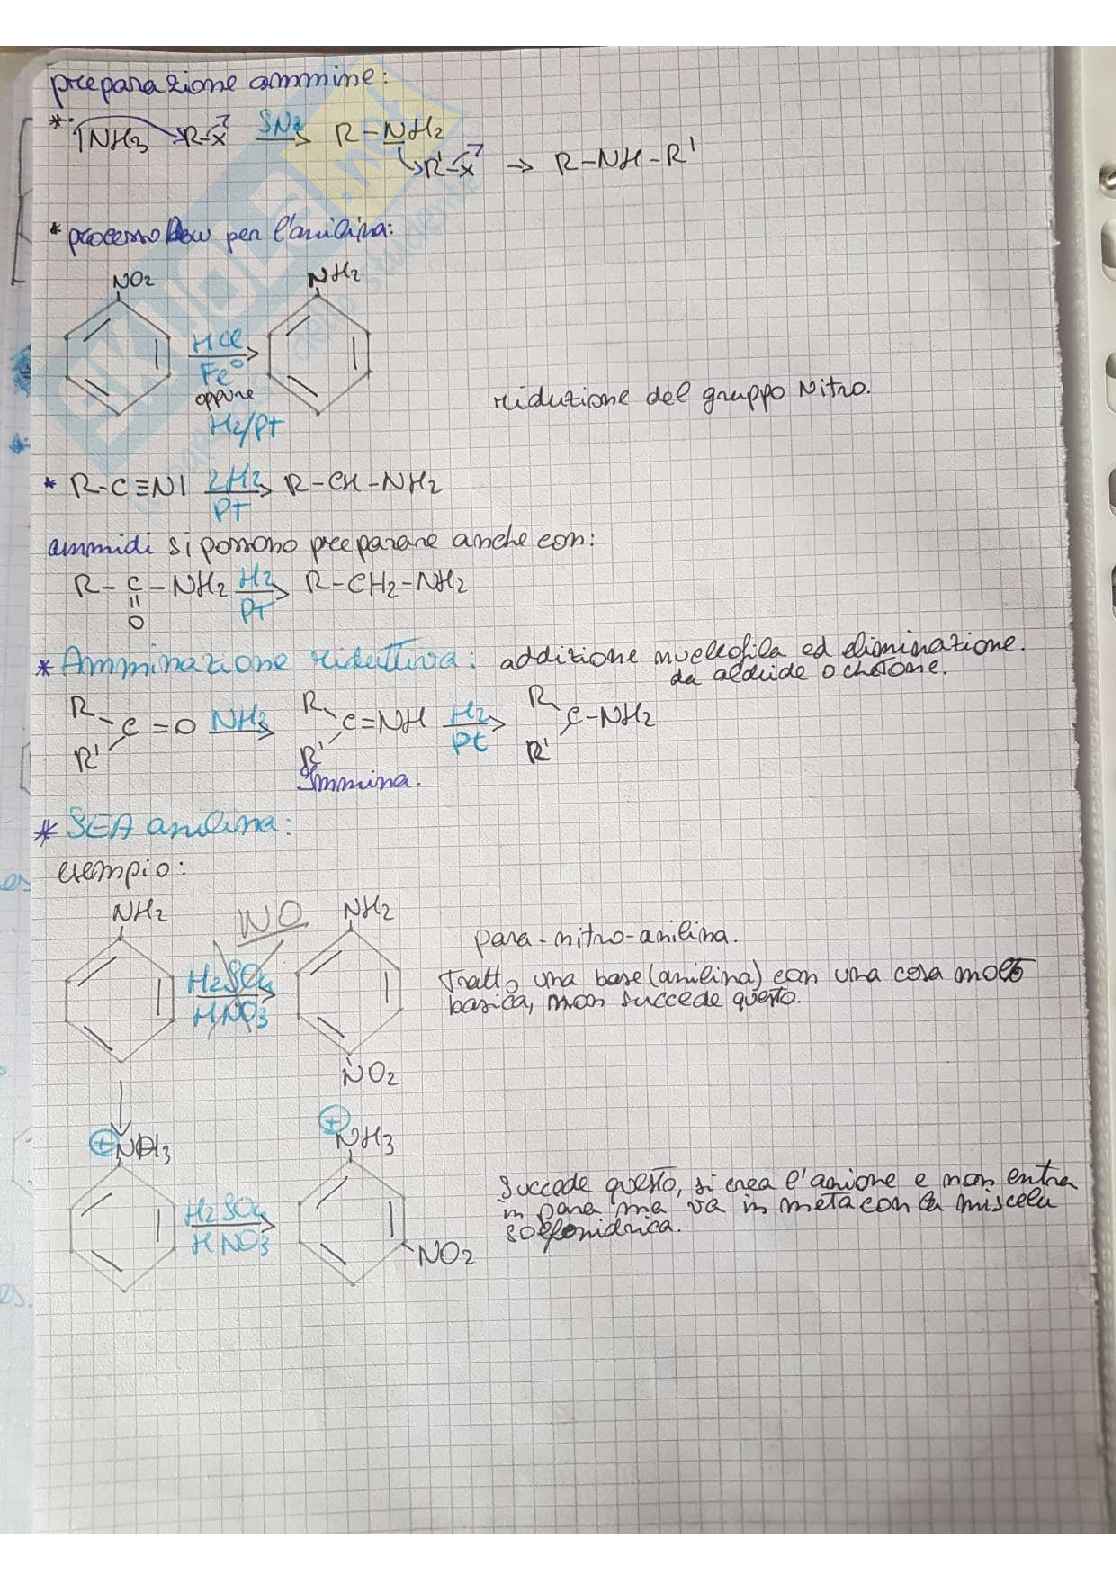 preparazione ammine:
* NH3 R-X SN2 R-NH2
R'-X → R-NH-R'
* processo per l'anilina:
NO2 NH2
HCl
Fe°
oppure
H2/PT
riduzione del gruppo Nitro.
* R-C≡N| 2H2 R-CH-NH2
PT
ammidi si possono preparare anche con:
R-C-NH2 H2 R-CH2-NH2
O PT
* Amminazione riduttiva: addizione nucleofila ed eliminazione.
da aldeide o chetone.
R R R
C=O NH3 C=NH H2 C-NH2
R' R' Pt R'
Immina.
* SEA anilina:
esempio:
NH2 NO NH2
para-nitro-anilina.
H2SO4 Tratto una base (anilina) con una cosa molto
HNO3 basica, non succede questo.
NO2
+ +
NH3 NH3
succede questo, si crea l'anione e non entra
H2SO4 in para ma va in meta con la miscela
HNO3 solfonidrica.
NO2